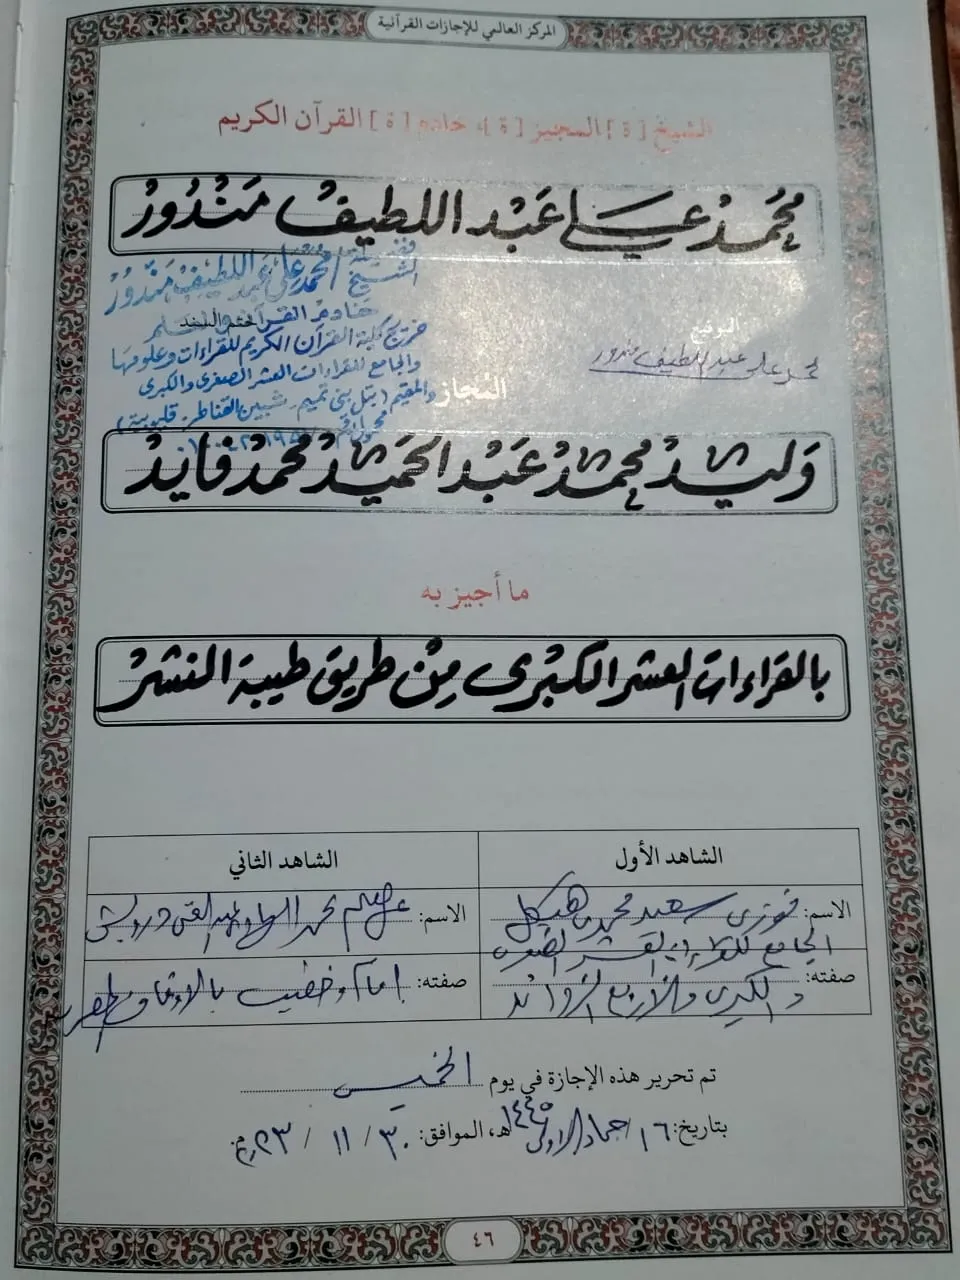 المركز العالمي للإجازات القرآنية
الشيخ [ة] المجيز [ة]، خادم [ة] القرآن الكريم
محمد علي عبد اللطيف مندور
فضيلة
الشيخ محمد علي عبد اللطيف مندور
خادم القرآن
خريج كلية القرآن الكريم للقراءات وعلومها
والجامع للقراءات العشر الصغرى والكبرى
والمقيم (بتل بني تميم - شبين القناطر - قليوبية)
التوقيع
محمد علي عبد اللطيف مندور
المجاز
وليد محمد عبد الحميد محمد فايد
ما أجيز به
بالقراءات العشر الكبرى من طريق طيبة النشر
الشاهد الأول
الاسم: فوزى سعيد محمد هيكل
الجامع للقراءات العشر الصغرى
صفته: والكبرى والأربع الزوائد
الشاهد الثاني
الاسم: محمد
صفته: إمام وخطيب بالأوقاف
تم تحرير هذه الإجازة في يوم الخميس
بتاريخ: ١٦ / جماد الأولى ١٤٤٥ هـ، الموافق: ٣٠ / ١١ / ٢٠٢٣ م.
٤٦